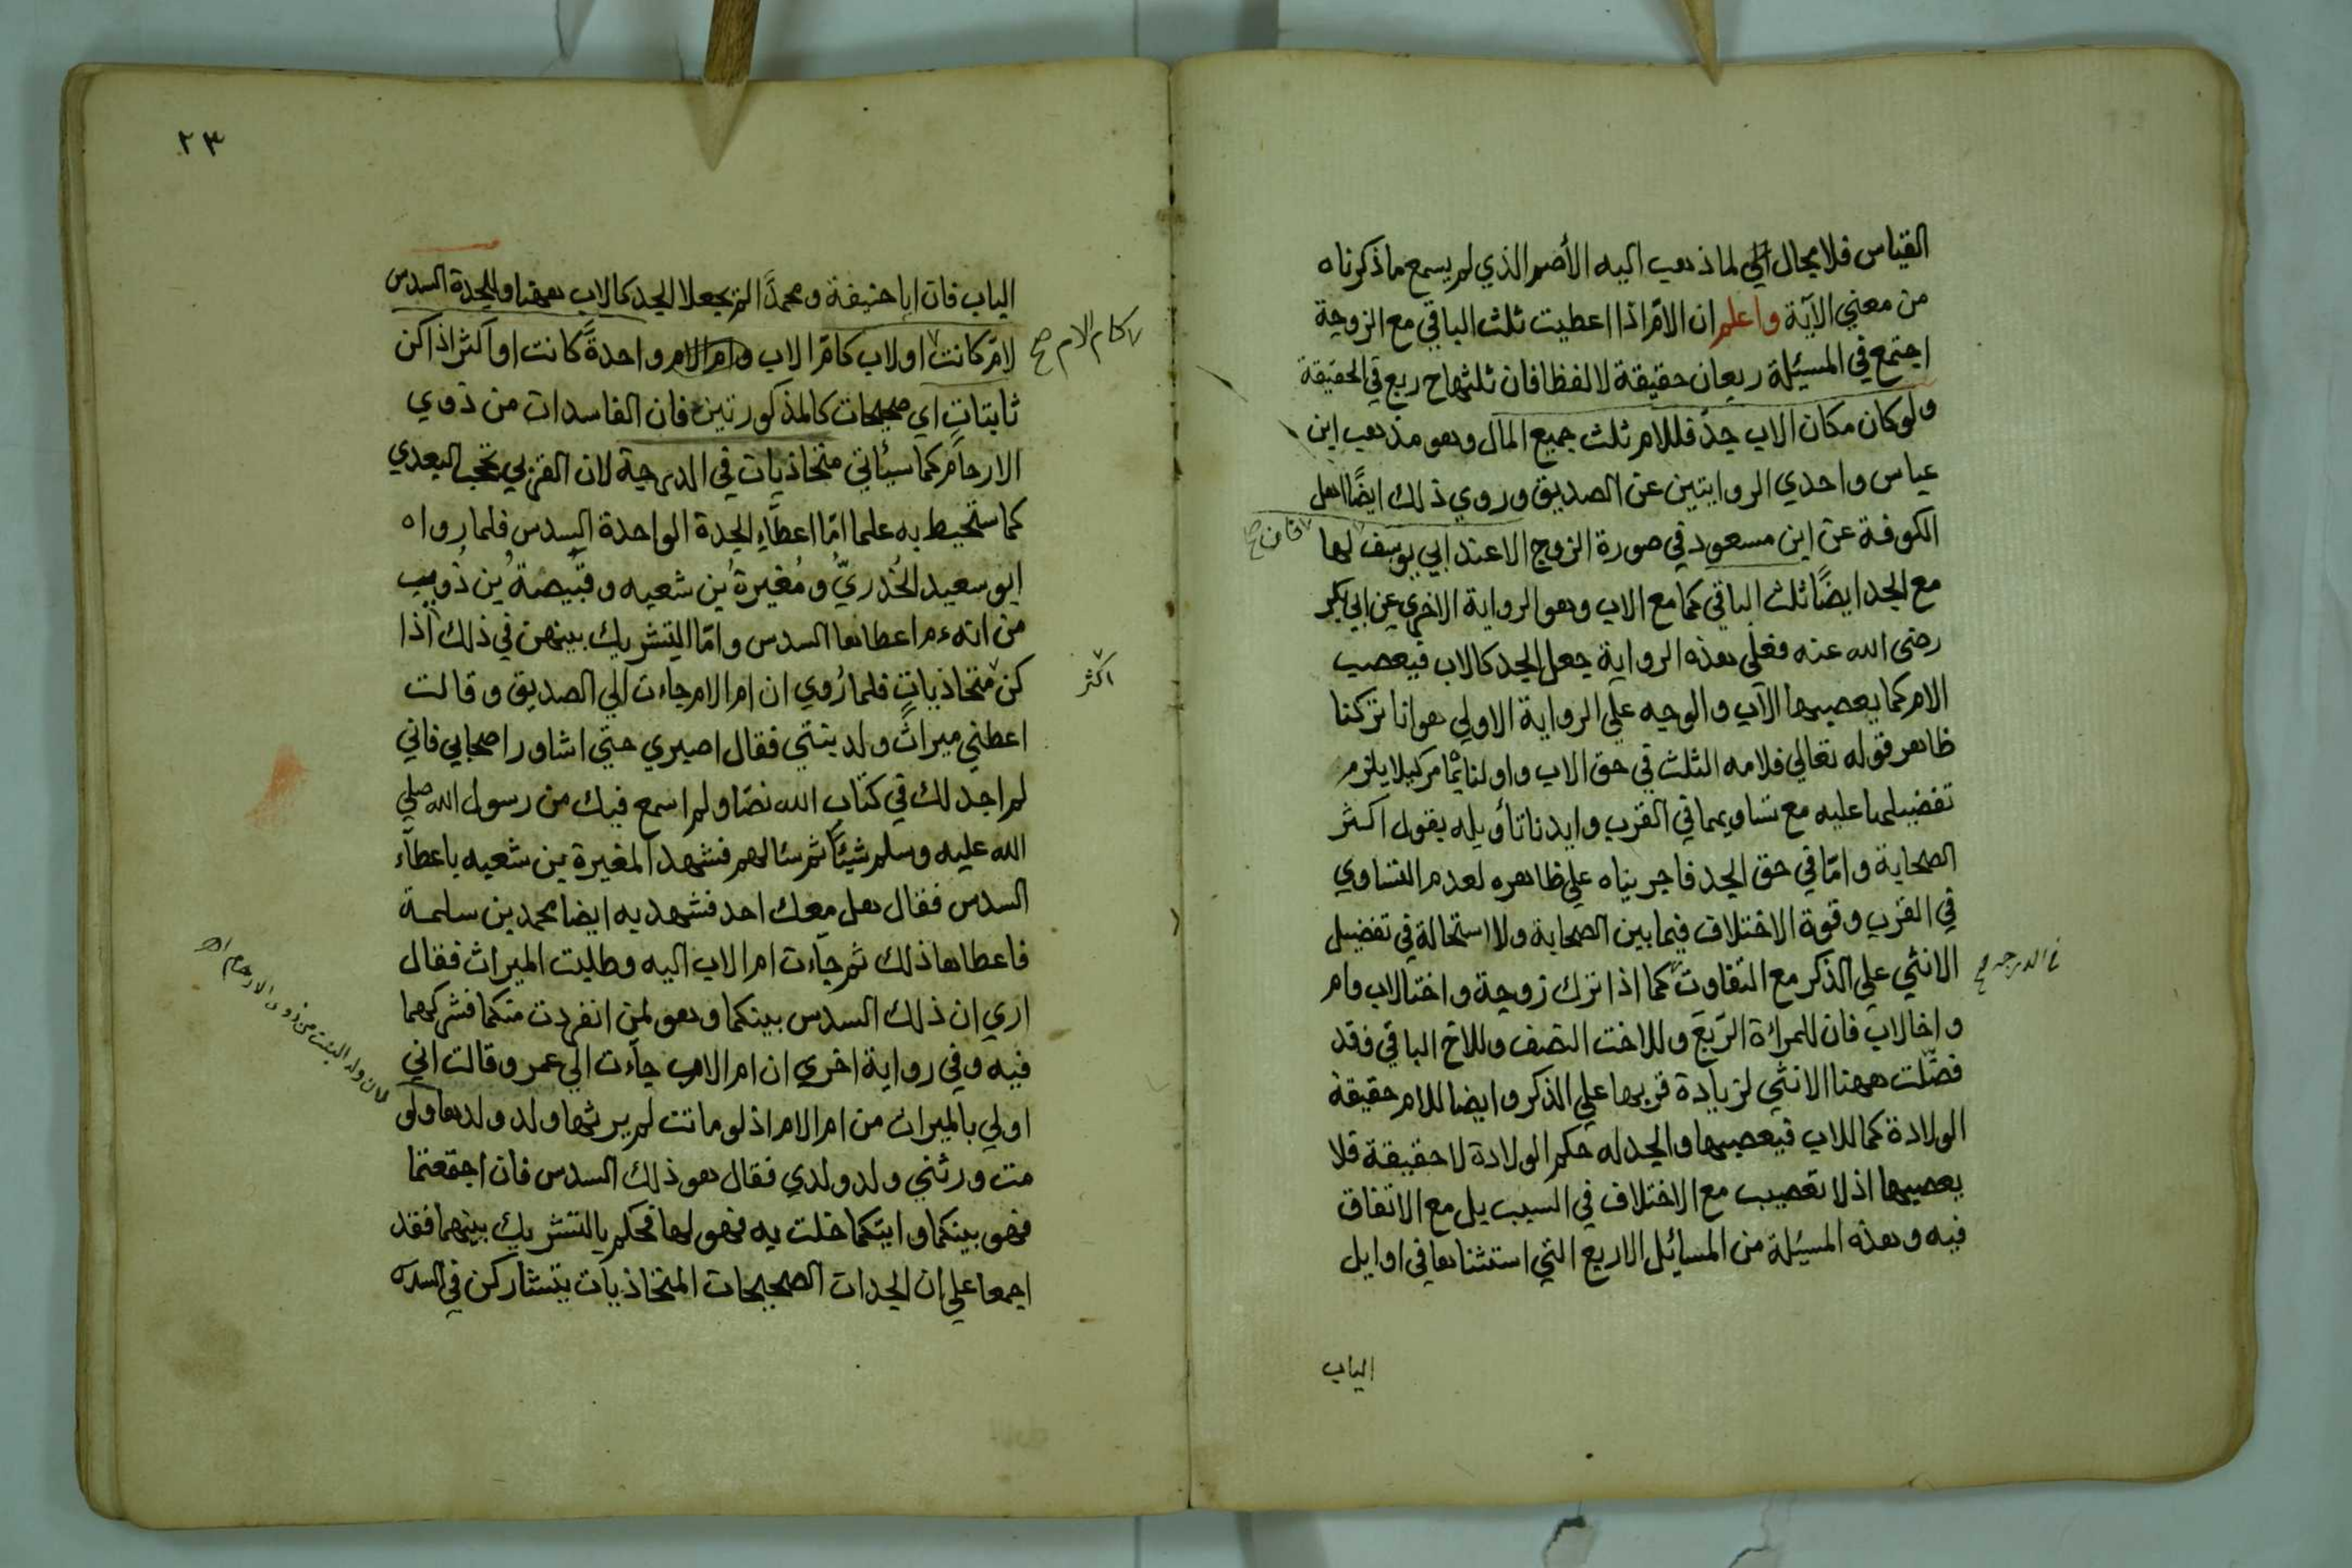 القياس فلا مجال الي لما ذهب اليه الأصم الذي لم يسمع ما ذكرناه
من معني الآية واعلم ان الامّ اذا اعطيت ثلث الباقي مع الزوجة
اجتمع في المسئلة ربعان حقيقة لا لفظا فان ثلثها ح ربع في الحقيقة
ولو كان مكان الاب جدّ فللام ثلث جميع المال وهو مذهب ابن
عباس واحدي الروايتين عن الصديق وروي ذلك ايضًا اهل
الكوفة عن ابن مسعود في صورة الزوج الا عند ابي يوسف لها
فان صح
مع الجد ايضًا ثلث الباقي كما مع الاب وهو الرواية الاخري عن ابي بكر
رضى الله عنه فعلي هذه الرواية جعل الجد كالاب فيعصب
الام كما يعصبها الاب والوجه علي الرواية الاولي هو انا تركنا
ظاهر قوله تعالي فلامه الثلث في حق الاب واولنا بما مر كيلا يلزم
تفضيلها عليه مع تساويهما في القرب وايدنا تأويله بقول اكثر
الصحابة وامّا في حق الجد فاجريناه علي ظاهره لعدم التساوي
في القرب وقوة الاختلاف فيما بين الصحابة ولا استحالة في تفضيل
الانثي علي الذكر مع التفاوت كما اذا ترك زوجة واختا لاب وام
في الدرجه صح
واخا لاب فان للمراة الرّبعَ وللاخت النصف وللاخ الباقي فقد
فضّلت ههنا الانثي لزيادة قربها علي الذكر وايضا للام حقيقة
الولادة كما للاب فيعصبها والجد له حكم الولادة لا حقيقة فلا
يعصبها اذ لا تعصيب مع الاختلاف في السبب بل مع الاتفاق
فيه وهذه المسئلة من المسائل الاربع التي استثناها في اوايل
الباب
٢٣
الباب فان ابا حنيفة ومحمدًا لم يجعلا الجد كالاب ههنا وللجدة السدس
لامّ كانت او لاب كامّ الاب وام الام واحدةً كانت او اكثر اذا كن
كام الام صح
ثابتاتٍ اي صحيحات كالمذكورتين فان الفاسدات من ذوي
الارحام كما سيأتي متحاذيات في الدرجة لان القربي تحجب البعدي
كما ستحيط به علما امّا اعطاء الجدة الواحدة السدس فلما رواه
ابو سعيد الخُدريّ ومُغيرةُ بن شعبه وقَبيصةُ بن ذُويب
من انه عم اعطاها السدس وامّا التشريك بينهن في ذلك اذا
كن متحاذياتٍ فلما رُوي ان ام الام جاءت الي الصديق وقالت
اكثر
اعطني ميراثَ ولد بنتي فقال اصبري حتي اشاور اصحابي فاني
لم اجد لك في كتاب الله نصّا ولم اسمع فيك من رسول الله صلي
الله عليه وسلم شيئًا ثم سئالهم فشهد المغيرة بن شعبه باعطاء
السدس فقال هل معك احد فشهد به ايضا محمد بن سلمة
فاعطاها ذلك ثم جاءت ام الاب اليه وطلبت الميراث فقال
اري ان ذلك السدس بينكما وهو لمن انفردت منكما فشركهما
فيه وفي رواية اخري ان ام الاب جاءت الي عمر وقالت اني
اولي بالميراث من ام الام اذ لو ماتت لم يرثها ولد ولدها ولو
لان ولد البنت من ذوى الارحام اه
مت ورثني ولد ولدي فقال هو ذلك السدس فان اجتمعتما
فهو بينكما وايتكما خلت به فهو لها فحكم بالتشريك بينهما فقد
اجمعا علي ان الجدات الصحيحات المتحاذيات يتشاركن في السدس